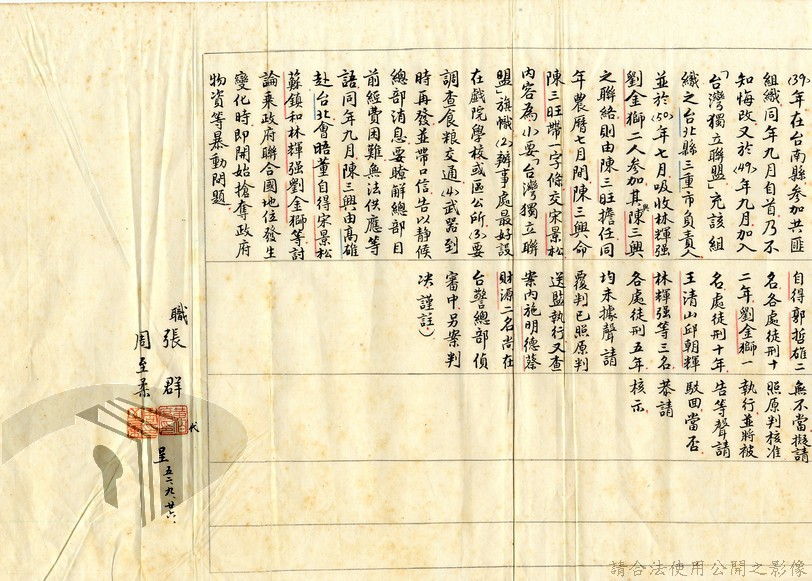 (39)年在台南縣參加共匪
組織同年九月自首乃不
知悔改又於(49)年九月加入
「台灣獨立聯盟」充該組
織之台北縣三重市負責人
並於(50)年七月吸收林輝强
劉金獅二人參加其與陳三興
之聯絡則由陳三旺擔任同
年農曆七月間陳三興命
陳三旺帶一字條交宋景松
內容為(1)要「台灣獨立聯
盟」旗幟(2)辦事處最好設
在戲院學校或區公所(3)要
調查食粮交通(4)武器到
時再發並帶口信告以靜候
總部消息要瞭解總部目
前經費困難無法供應等
語同年九月陳三興由高雄
赴台北會晤董自得宋景松
蘇鎮和林輝强劉金獅等討
論乘政府聯合國地位發生
變化時即開始搶奪政府
物資等暴動問題
自得郭哲雄二
名各處徒刑十
二年劉金獅一
名處徒刑十年
王清山邱朝輝
林輝强等三名
各處徒刑五年
均未據聲請
覆判已照原判
送監執行又查
案內施明德蔡
財源二名尚在
台警總部偵
審中另案判
决謹註)
無不當擬請
照原判核准
執行並將被
告等聲請
駁回當否
恭請
核示
職張群
周至柔
代
呈 五二、九、廿六、
請合法使用公開之影像